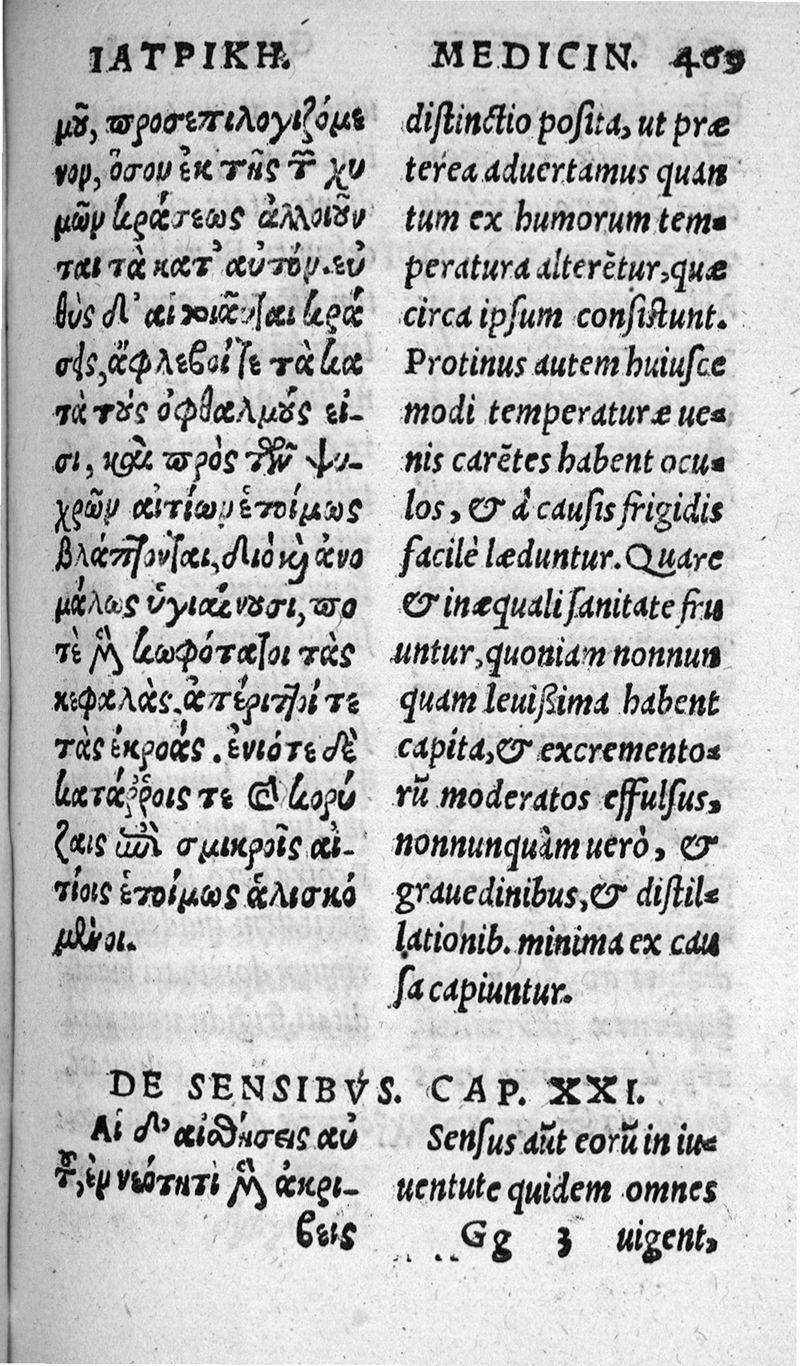 ΙΑΤΡΙΚΗ.
μοῦ, προσεπιλογιζόμε
νον, ὅσον ἐκ τῆς τῶν χυ
μῶν κράσεως ἀλλοιοῦν
ται τὰ κατ' αὐτόν. εὐ
θὺς δ' αἱ τοιαῦται κρά
σεις, ἄφλεβοί τε τὰ κα
τὰ τοὺς ὀφθαλμούς εἰ-
σι, καὶ πρὸς τῶν ψυ-
χρῶν αἰτίων ἑτοίμως
βλάπτονται, διὸ καὶ ἀνο
μάλως ὑγιαίνουσι, πο
τὲ μὲν κωφόταται τὰς
κεφαλὰς, ἀπέριττοί τε
τὰς ἐκροάς. ἐνιότε δὲ
κατάῤῥοις τε καὶ κορύ
ζαις ἐπὶ σμικροῖς αἰ-
τίοις ἑτοίμως ἁλισκό
μενοι.
MEDICIN. 469
distinctio posita, ut præ
terea aduertamus quan
tum ex humorum tem-
peratura alterẽtur, quæ
circa ipsum consistunt.
Protinus autem huiusce
modi temperaturæ ue-
nis carẽtes habent ocu-
los, & à causis frigidis
facilè læduntur. Quare
& inæquali sanitate fru
untur, quoniam nonnun
quam leuißima habent
capita, & excremento-
rũ moderatos effulsus,
nonnunquàm uerò, &
grauedinibus, & distil-
lationib. minima ex cau
sa capiuntur.
DE SENSIBVS. CAP. XXI.
Αἱ δ' αἰσθήσεις αὐ
τοῦ, ἐν νεότητι μὲν ἀκρι-
βεις
Sensus aũt eorũ in iu-
uentute quidem omnes
Gg 3 uigent,